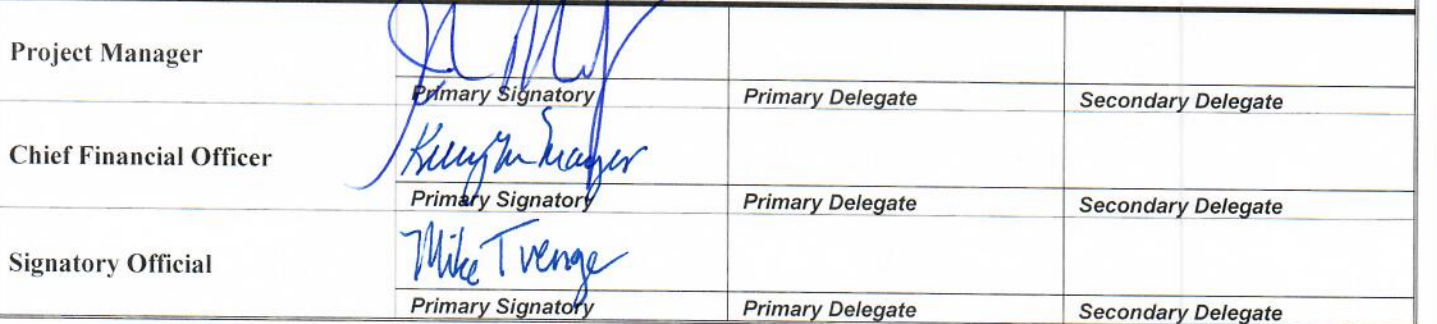 Project Manager
Primary Signatory Primary Delegate Secondary Delegate
Chief Financial Officer
Primary Signatory Primary Delegate Secondary Delegate
Signatory Official Mike Tvenge
Primary Signatory Primary Delegate Secondary Delegate